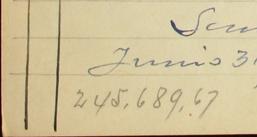 Junio 3
245,689,67